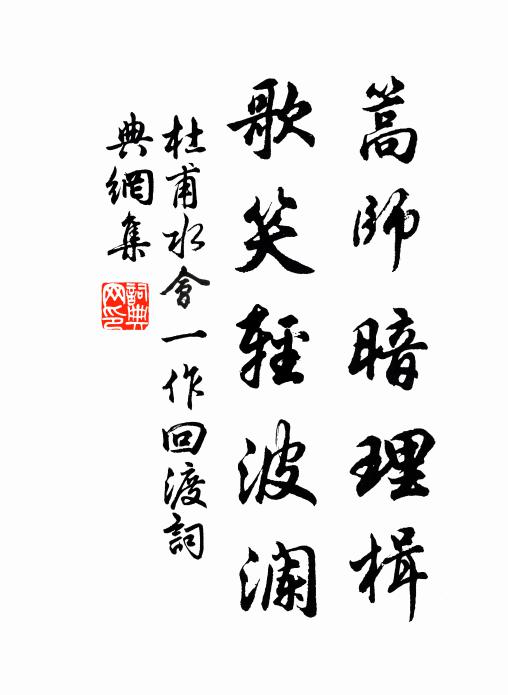 篙師暗理楫
歌笑輕波瀾
杜甫水會一作回渡詞
典網集
詞典
网印